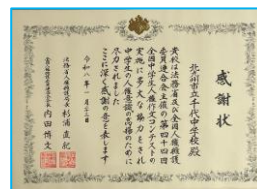 感謝状
北九州市立千代中学校殿
貴校は法務省及び全国人権擁護
委員連合会主催の第四十四回
全国中学生人権作文コンテストの
実施に多大な協力をされ
中学生の人権意識の高揚のために
尽力されました
ここに深く感謝の意を表します
令和八年一月
法務省人権擁護局長 杉浦直紀
全国人権擁護委員連合会会長 内田博文